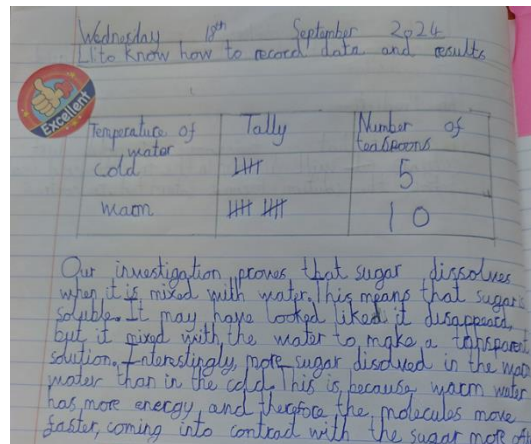 Wednesday 18th September 2024
LI: to know how to record data and results
Excellent
Temperature of water Tally Number of teaspoons
cold 5
warm 10
Our investigation proves that sugar dissolves
when it is mixed with water. This means that sugar is
soluble. It may have looked liked it disappeard,
but it mixed with the water to make a transparent
solution. Interestingly, more sugar disolved in the warm
water than in the cold. This is because warm water
has more energy and therefore the molecules move
faster, coming into contract with the sugar more